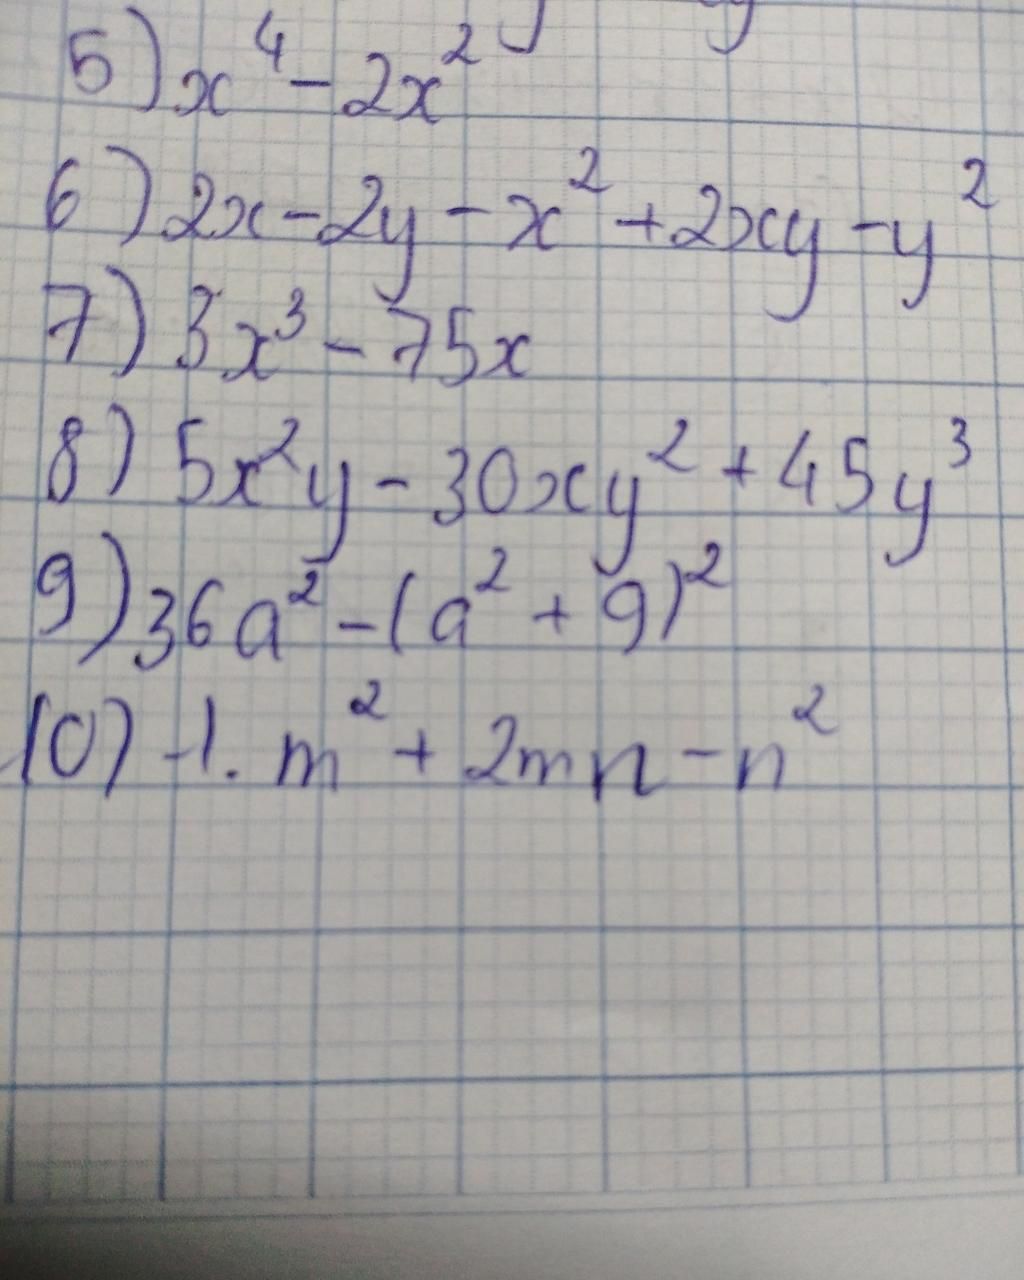 5) x⁴ - 2x²
6) 2x - 2y - x² + 2xy - y²
7) 3x³ - 75x
8) 5x²y - 30xy² + 45y³
9) 36a² - (a² + 9)²
10) -1. m² + 2mn - n²